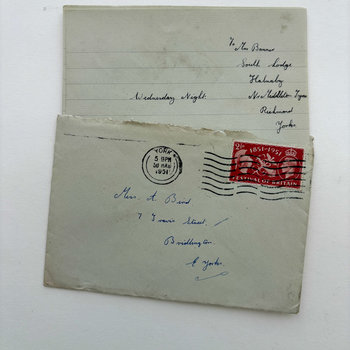 To Mrs
South Lodge
Halnaby
Nr Middleton Tyas
Richmond
Yorks
Wednesday Night.
YORK
5 PM
1951
2½
1851-1951
FESTIVAL OF BRITAIN
Mrs. A. Bird.
7 Travis Street.
Bridlington.
E Yorks.